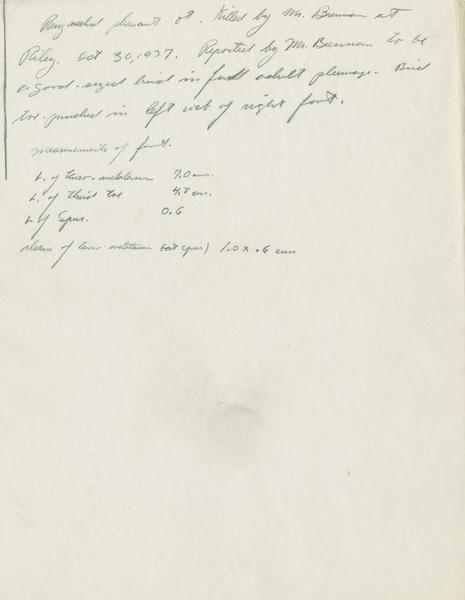 Ringnecked pheasant ♂. Killed by Mr. Brennan at
Riley. Oct 30, 1937. Reported by Mr. Brennan to be
a good-sized bird in full adult plumage. Bird
toe-punched in left web of right foot.
measurements of foot.
L. of tarso-metatarsus 7.0 cm.
L. of third toe 4.8 cm.
L. of Spur. 0.6
diam of tarso-metatarsus (at spur) 1.0 x .6 cm